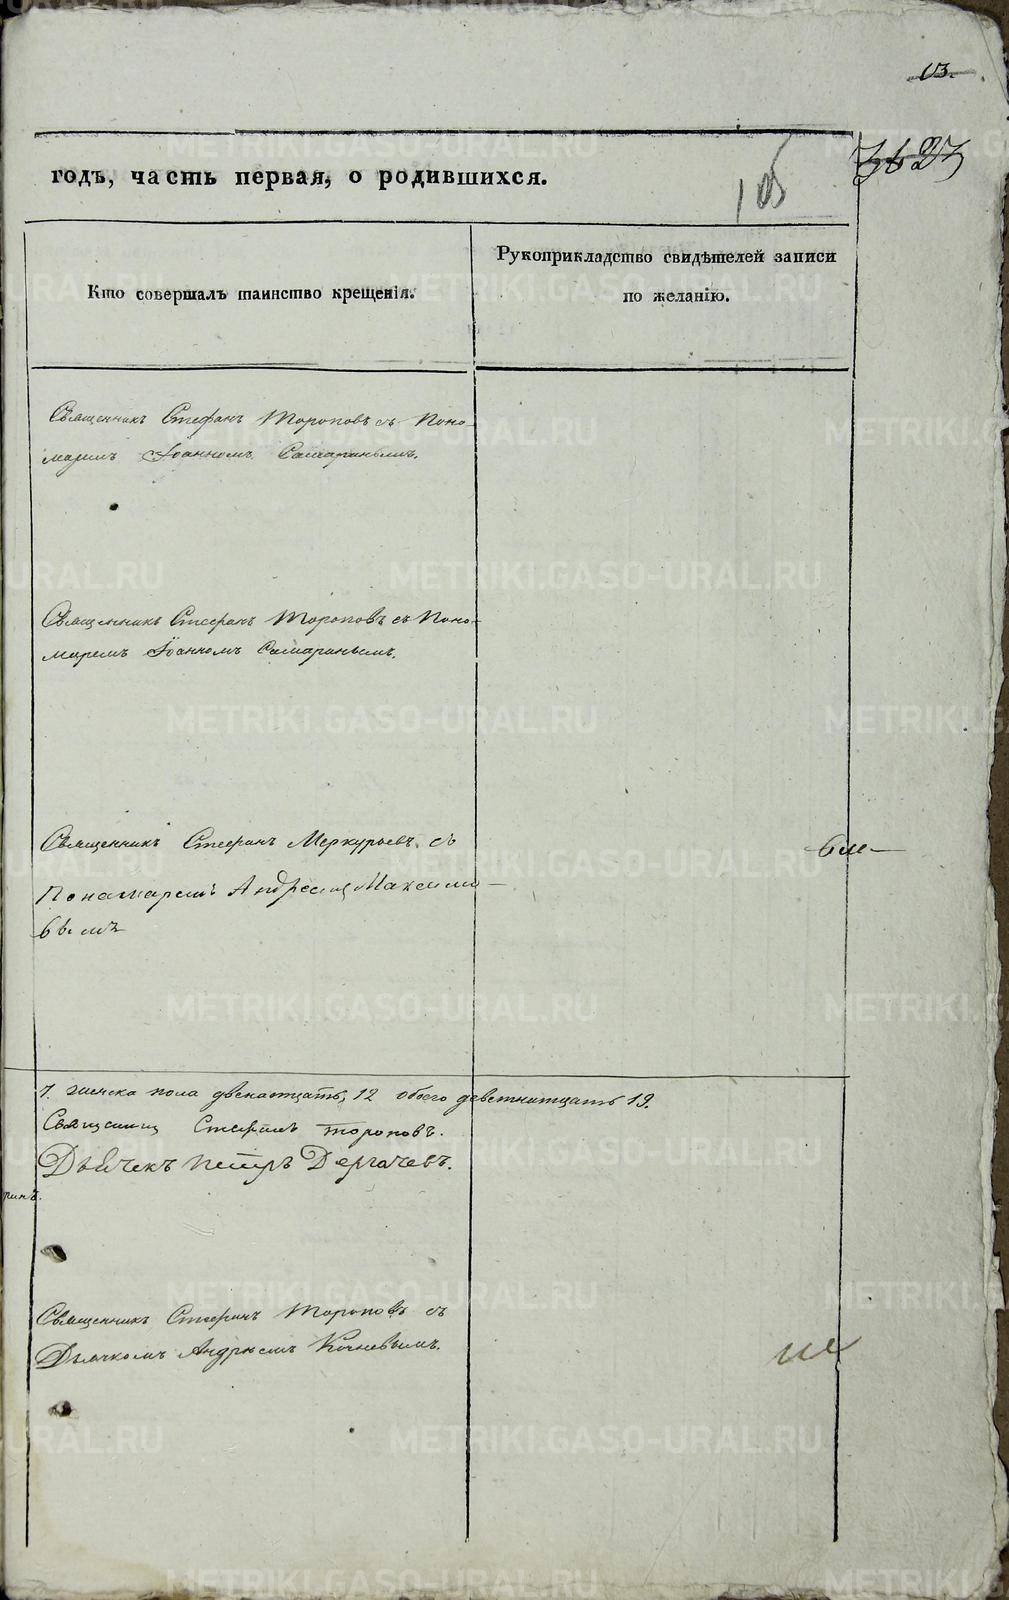 13.
годъ, часть первая, о родившихся.
105
Кто совершалъ таинство крещенія.
Рукоприкладство свидѣтелей записи
по желанію.
Священникъ Стефанъ Тороповъ съ Поно-
маремъ Іоанномъ Самаринымъ.
Священникъ Стефанъ Тороповъ съ Поно-
маремъ Іоанномъ Самаринымъ.
Священникъ Стефанъ Меркурьевъ съ
Понамаремъ Андреемъ Максимо-
вымъ
7. женска пола двенатцать, 12 обоего деветнатцать 19.
Священникъ Стефанъ Тороповъ.
Дьячекъ Петръ Дергачевъ.
ринъ.
Священникъ Стефанъ Тороповъ съ
Дьячкомъ Андреемъ Кочневымъ.
METRIKI.GASO-URAL.RU